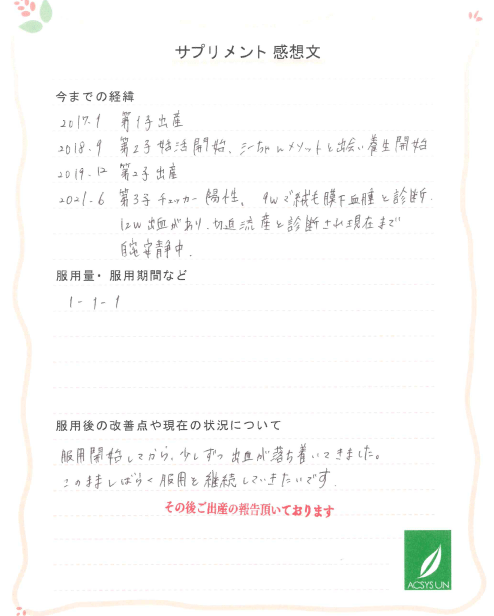 サプリメント 感想文
今までの経緯
2017.9 第1子出産
2018.9 第2子妊活開始、シーちゃんメソットと出会い養生開始
2019.12 第2子出産
2021.6 第3子チェッカー陽性、9wで絨毛膜下血腫と診断.
12w出血があり、切迫流産と診断され現在まで
自宅安静中.
服用量・服用期間など
1-1-1
服用後の改善点や現在の状況について
服用開始してから、少しずつ出血が落ち着いてきました。
このまましばらく服用を継続していきたいです.
その後ご出産の報告頂いております
ACSYSUN